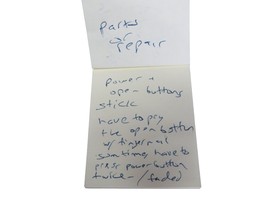 parts
or
repair
power +
open buttons
stick
have to pry
the open button
w/ fingernail
sometimes have to
press power button
twice - / faded